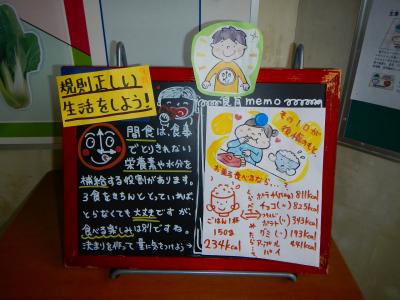 規則正しい
生活をしよう!
間食は、食事
でとりきれない
栄養素や水分を
補給する役割があります。
3食をきちんととっていれば、
とらなくても大丈夫ですが、
食べる楽しみは別ですね。
決まりを作って量に気をつけよう→
食育memo
その1口が
後悔のもと。
お菓子食べるなら…
ごはん1杯
150g
234kcal
ポテトチップス(〃)811kcal
チョコ(〃)825kcal
343kcal
グミ(〃)193kcal
アップル
パイ
441kcal